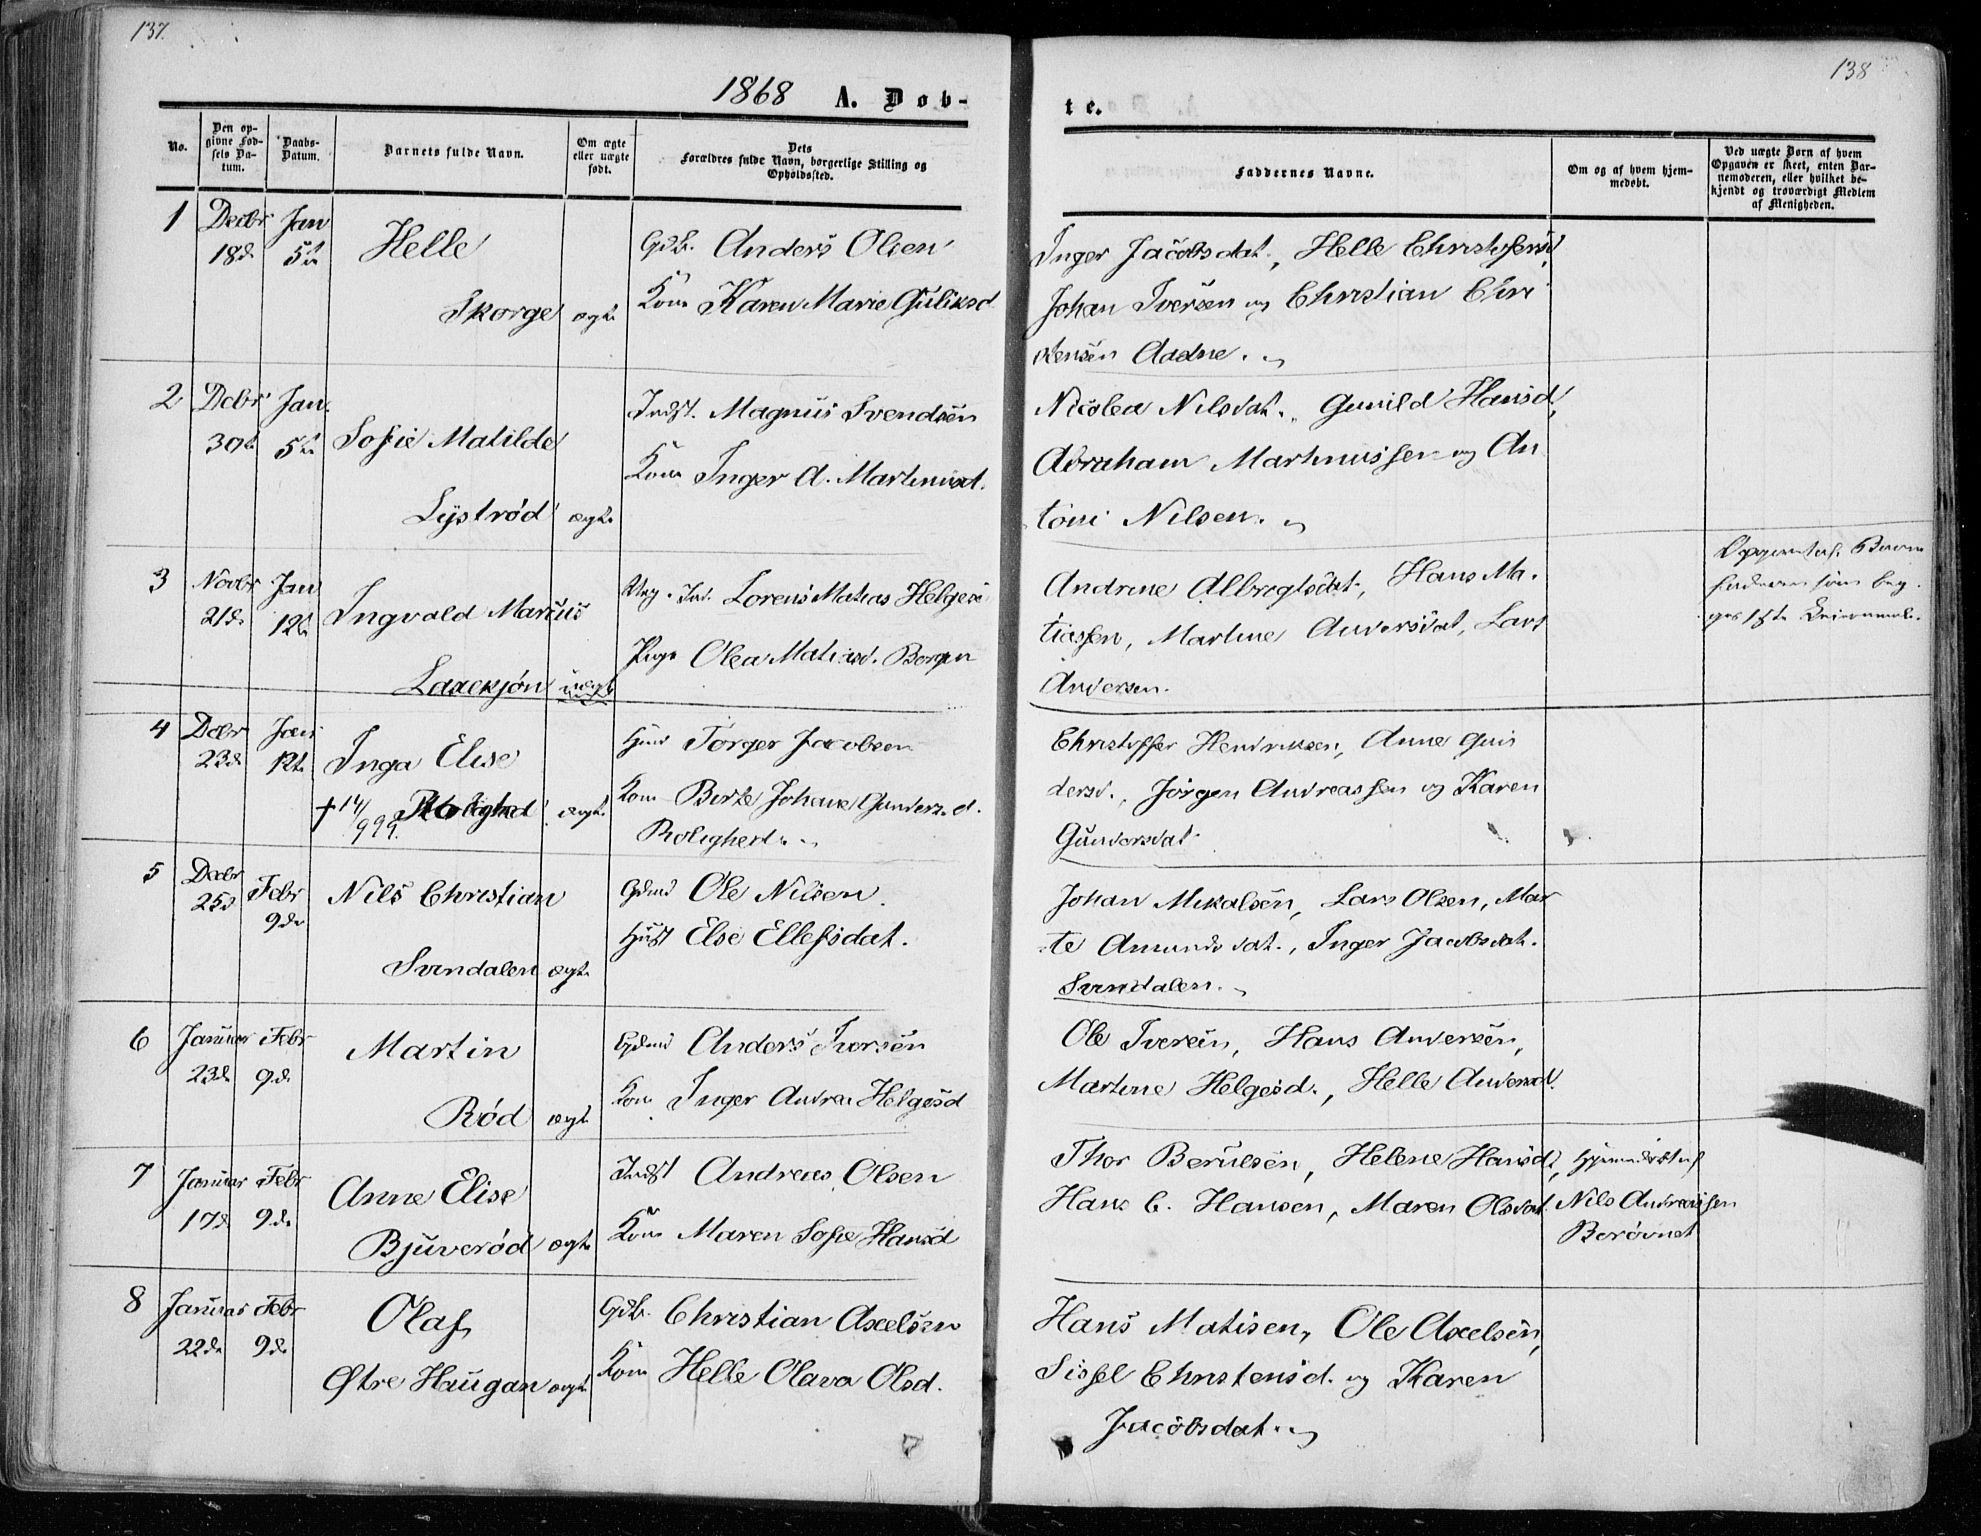 137.
138
1868 A. Døb-
te.
No.
Den op-
givne Fød-
sels Da-
tum.
Daabs-
Datum.
Barnets fulde Navn.
Om ægte
eller uægte
født.
Dets
Forældres fulde Navn, borgerlige Stilling og
Opholdssted.
Faddernes Navne.
Om og af hvem hjem-
medøbt.
Ved uægte Børn af hvem
Opgaven er skeet, enten Bar-
nemoderen, eller hvilket be-
kjendt og troværdigt Medlem
af Menigheden.
1 Decbr Jan
18d 5te
Helle
Skorge ægte
Gdb. Anders Olsen
Kone Karen Marie Guliksd
Inger Jacobsdat., Helle Christofersd,
Johan Iversen og Christian Chri
stensen Aadne.
2 Dcbr Jan.
30te 5te
Sofie Matilde
Lystrød ægte
Indst. Magnus Svendsen
Kone Inger A. Martinusd.
Nicolea Nilsdat., Gunild Hansd,
Abraham Martinussen og An
toni Nilsen.
3 Novbr Jan
21de 12te
Ingvald Marius
Laxesjøn uægte
Ung. Lorens Matias Helgesen
Pige Olea Matiasd. Borgen
Andrine Albregtsdat, Hans Ma.
tiassen, Martine Andersdat, Lars
Andersen.
4 Dcbr Jan
23de 12te
Inga Elise
† 14/
999. Rolighed ægte
Torger Jacobsen
Kone Berte Johane Gundersd.
Rolighed.
Christoffer Hendriksen, Anne Gun
dersd., Jørgen Andreassen og Karen
Gundersdat
5 Decbr Febr
25d 9de
Nils Christian
Svendalen ægte
Gdmd Ole Nilsen.
Hust Else Ellefsdat.
Johan Mikalsen, Lars Olsen, Mar
te Amundsdat., Inger Jacobsdat.
Svendalen.
6 Januar Febr
23de 9de
Martin
Rød ægte
Gdmd Anders Iversen
Kone Inger Andrea Helgesd
Ole Iversen, Hans Andersen,
Martine Helgesd., Helle Andersd.
7 Januar Febr
17d 9de
Anne Elise
Bjuverød ægte
Indst Andreas Olsen
Kone Maren Sofie Hansd
Thor Berulsen, Helene Hansd,
Hans C. Hansen, Maren Olsdat.
Hjemmedøbt af
Nils Andreassen
8 Januar Febr
22de 9de
Olaf
Østre Haugan ægte
Gdb. Christian Axelsen
Kone Helle Olava Olsd.
Hans Matisen, Ole Axelsen,
Sissel Christensd. og Karen
Jacobsdat.